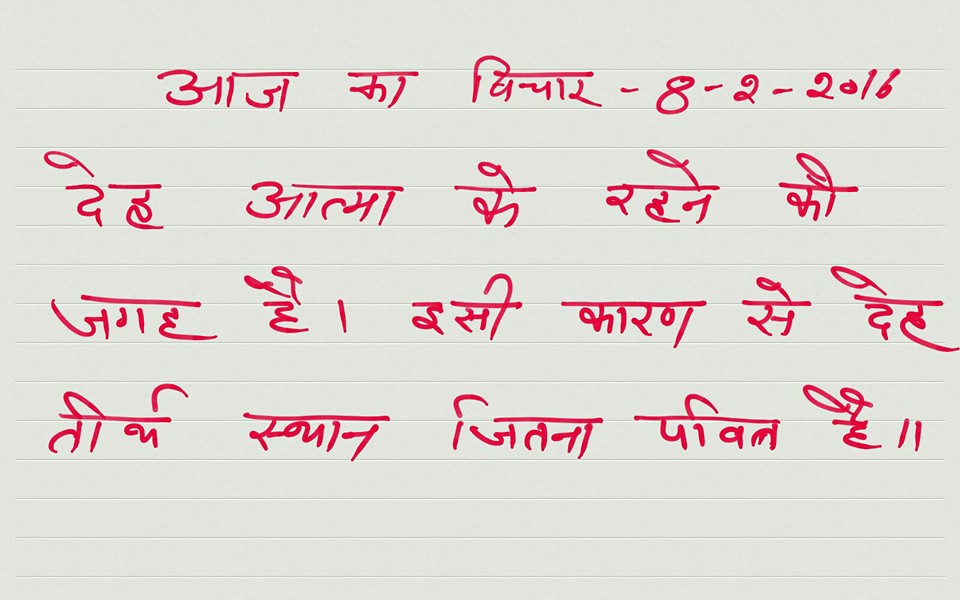 आज का विचार - 8-2-2016
देह आत्मा के रहने की
जगह है। इसी कारण से देह
तीर्थ स्थान जितना पवित्र है॥